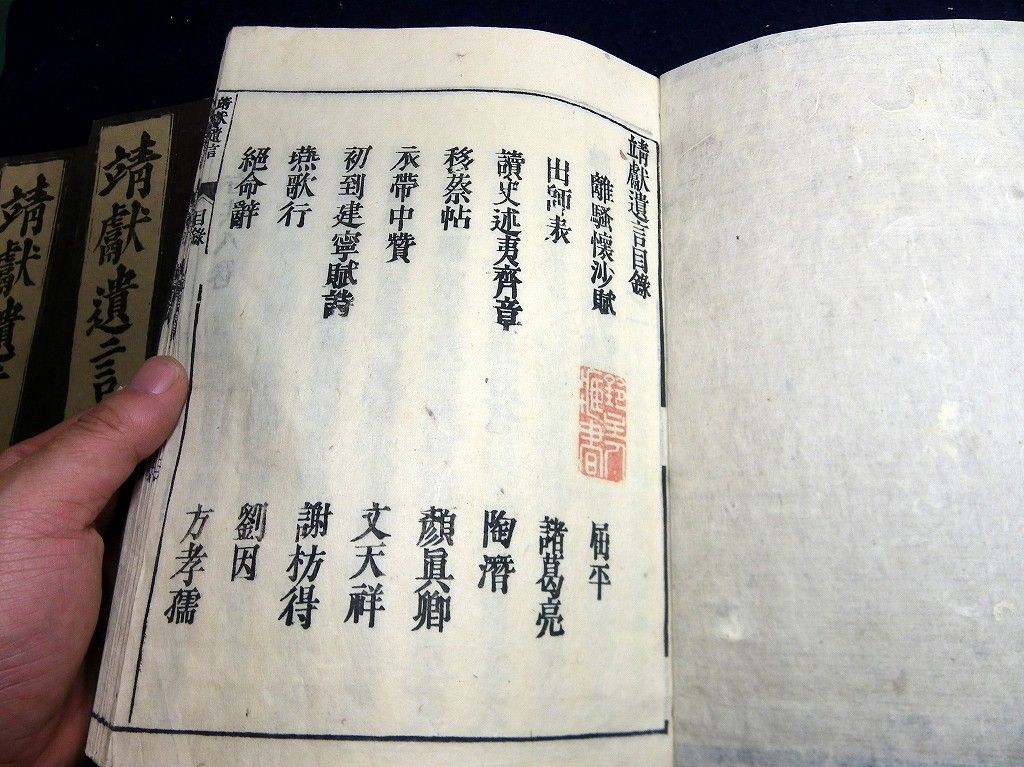 靖獻遺言目錄
離騷懷沙賦
屈平
出師表
諸葛亮
讀史述夷齊章
陶潛
移蔡帖
顏眞卿
衣帶中贊
文天祥
初到建寧賦詩
謝枋得
燕歌行
劉因
絕命辭
方孝孺
靖獻遺言
目錄
靖獻遺言
靖獻遺